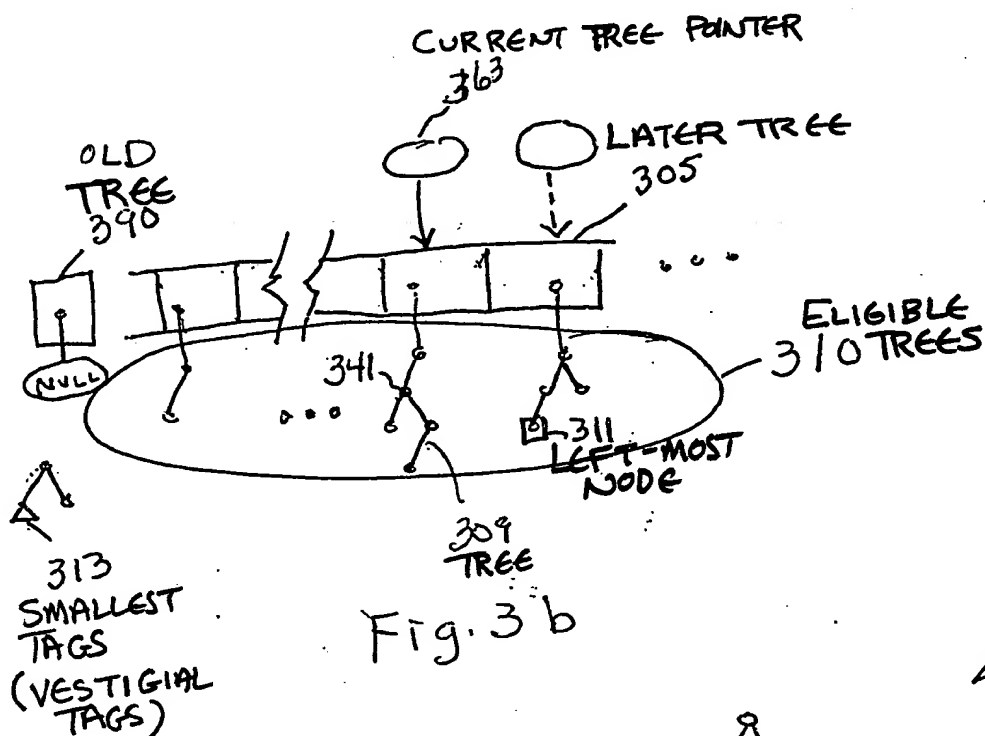 CURRENT TREE POINTER
363
OLD
TREE
390
LATER TREE
305
NULL
ELIGIBLE
310 TREES
341
311
LEFT-MOST
NODE
309
TREE
313
SMALLEST
TAGS
(VESTIGIAL
TAGS)
Fig. 3b